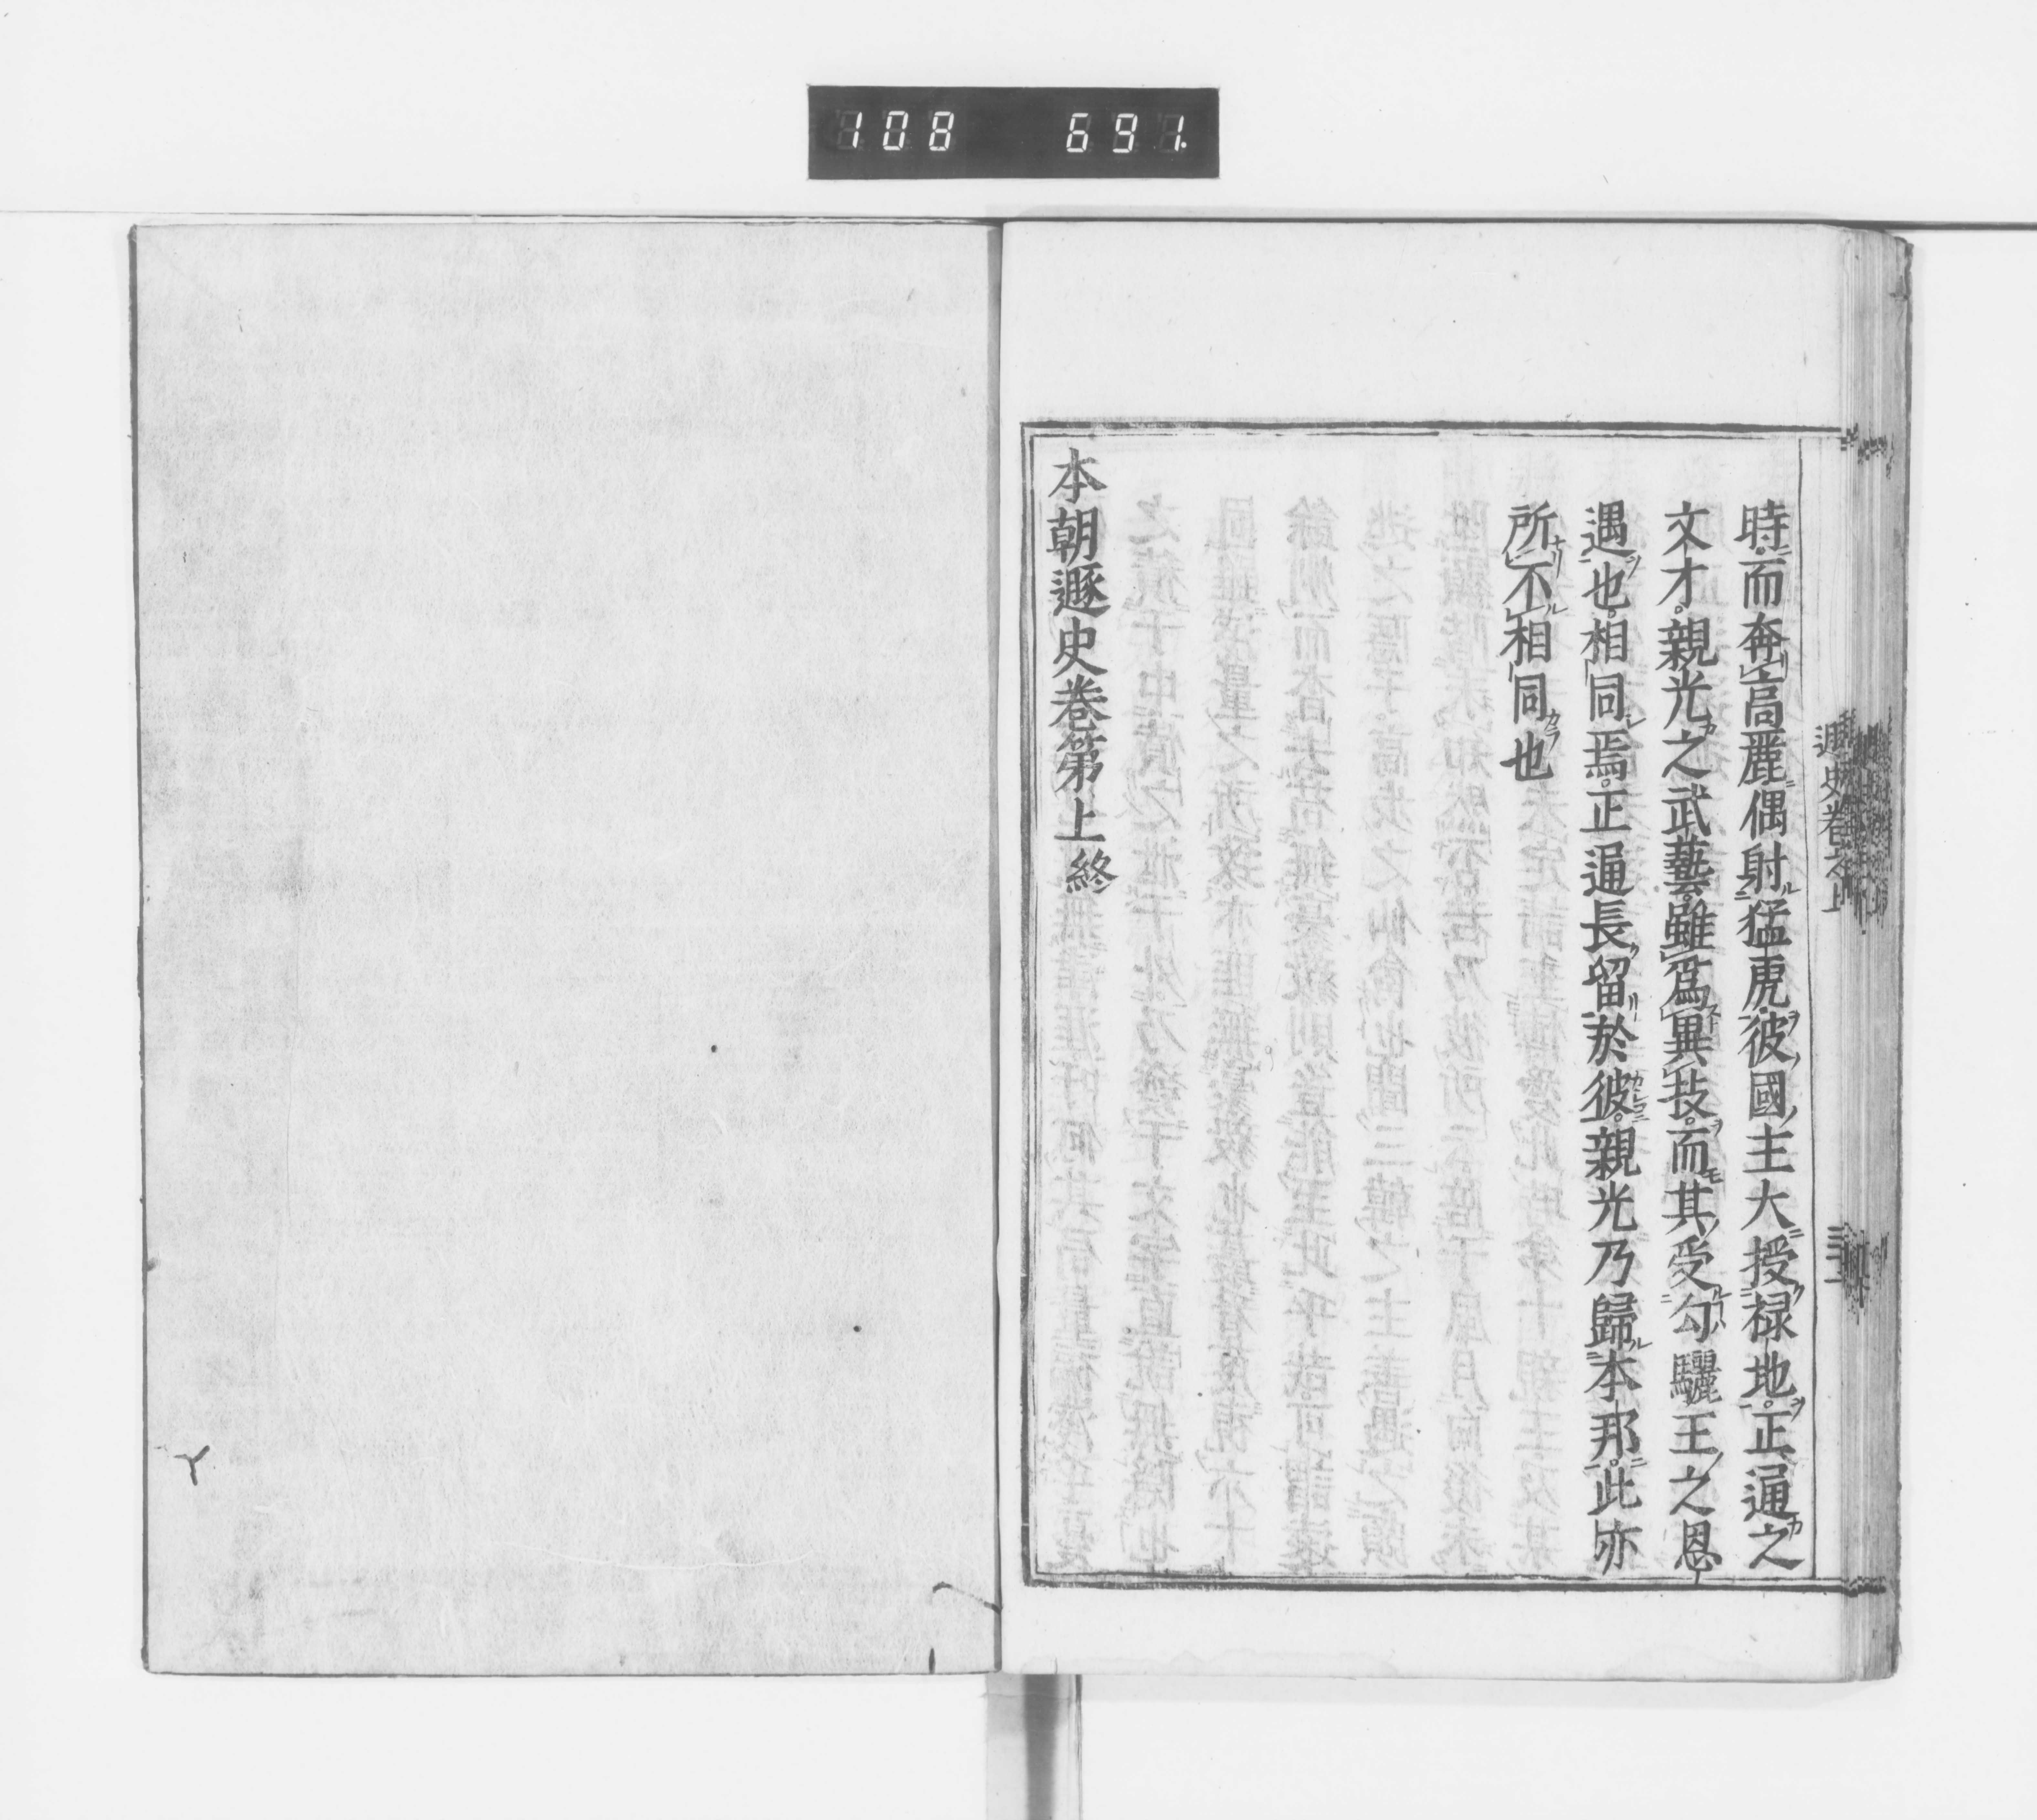 108 691.
時而奔高麗偶射猛虎彼國主大授祿地。正通之
文才。親光之武藝。雖爲異技。而其受勾驪王之恩
遇也。相同焉。正通長留於彼。親光乃歸本邦。此亦
所不相同也
本朝遯史卷第上終
遯史卷之上